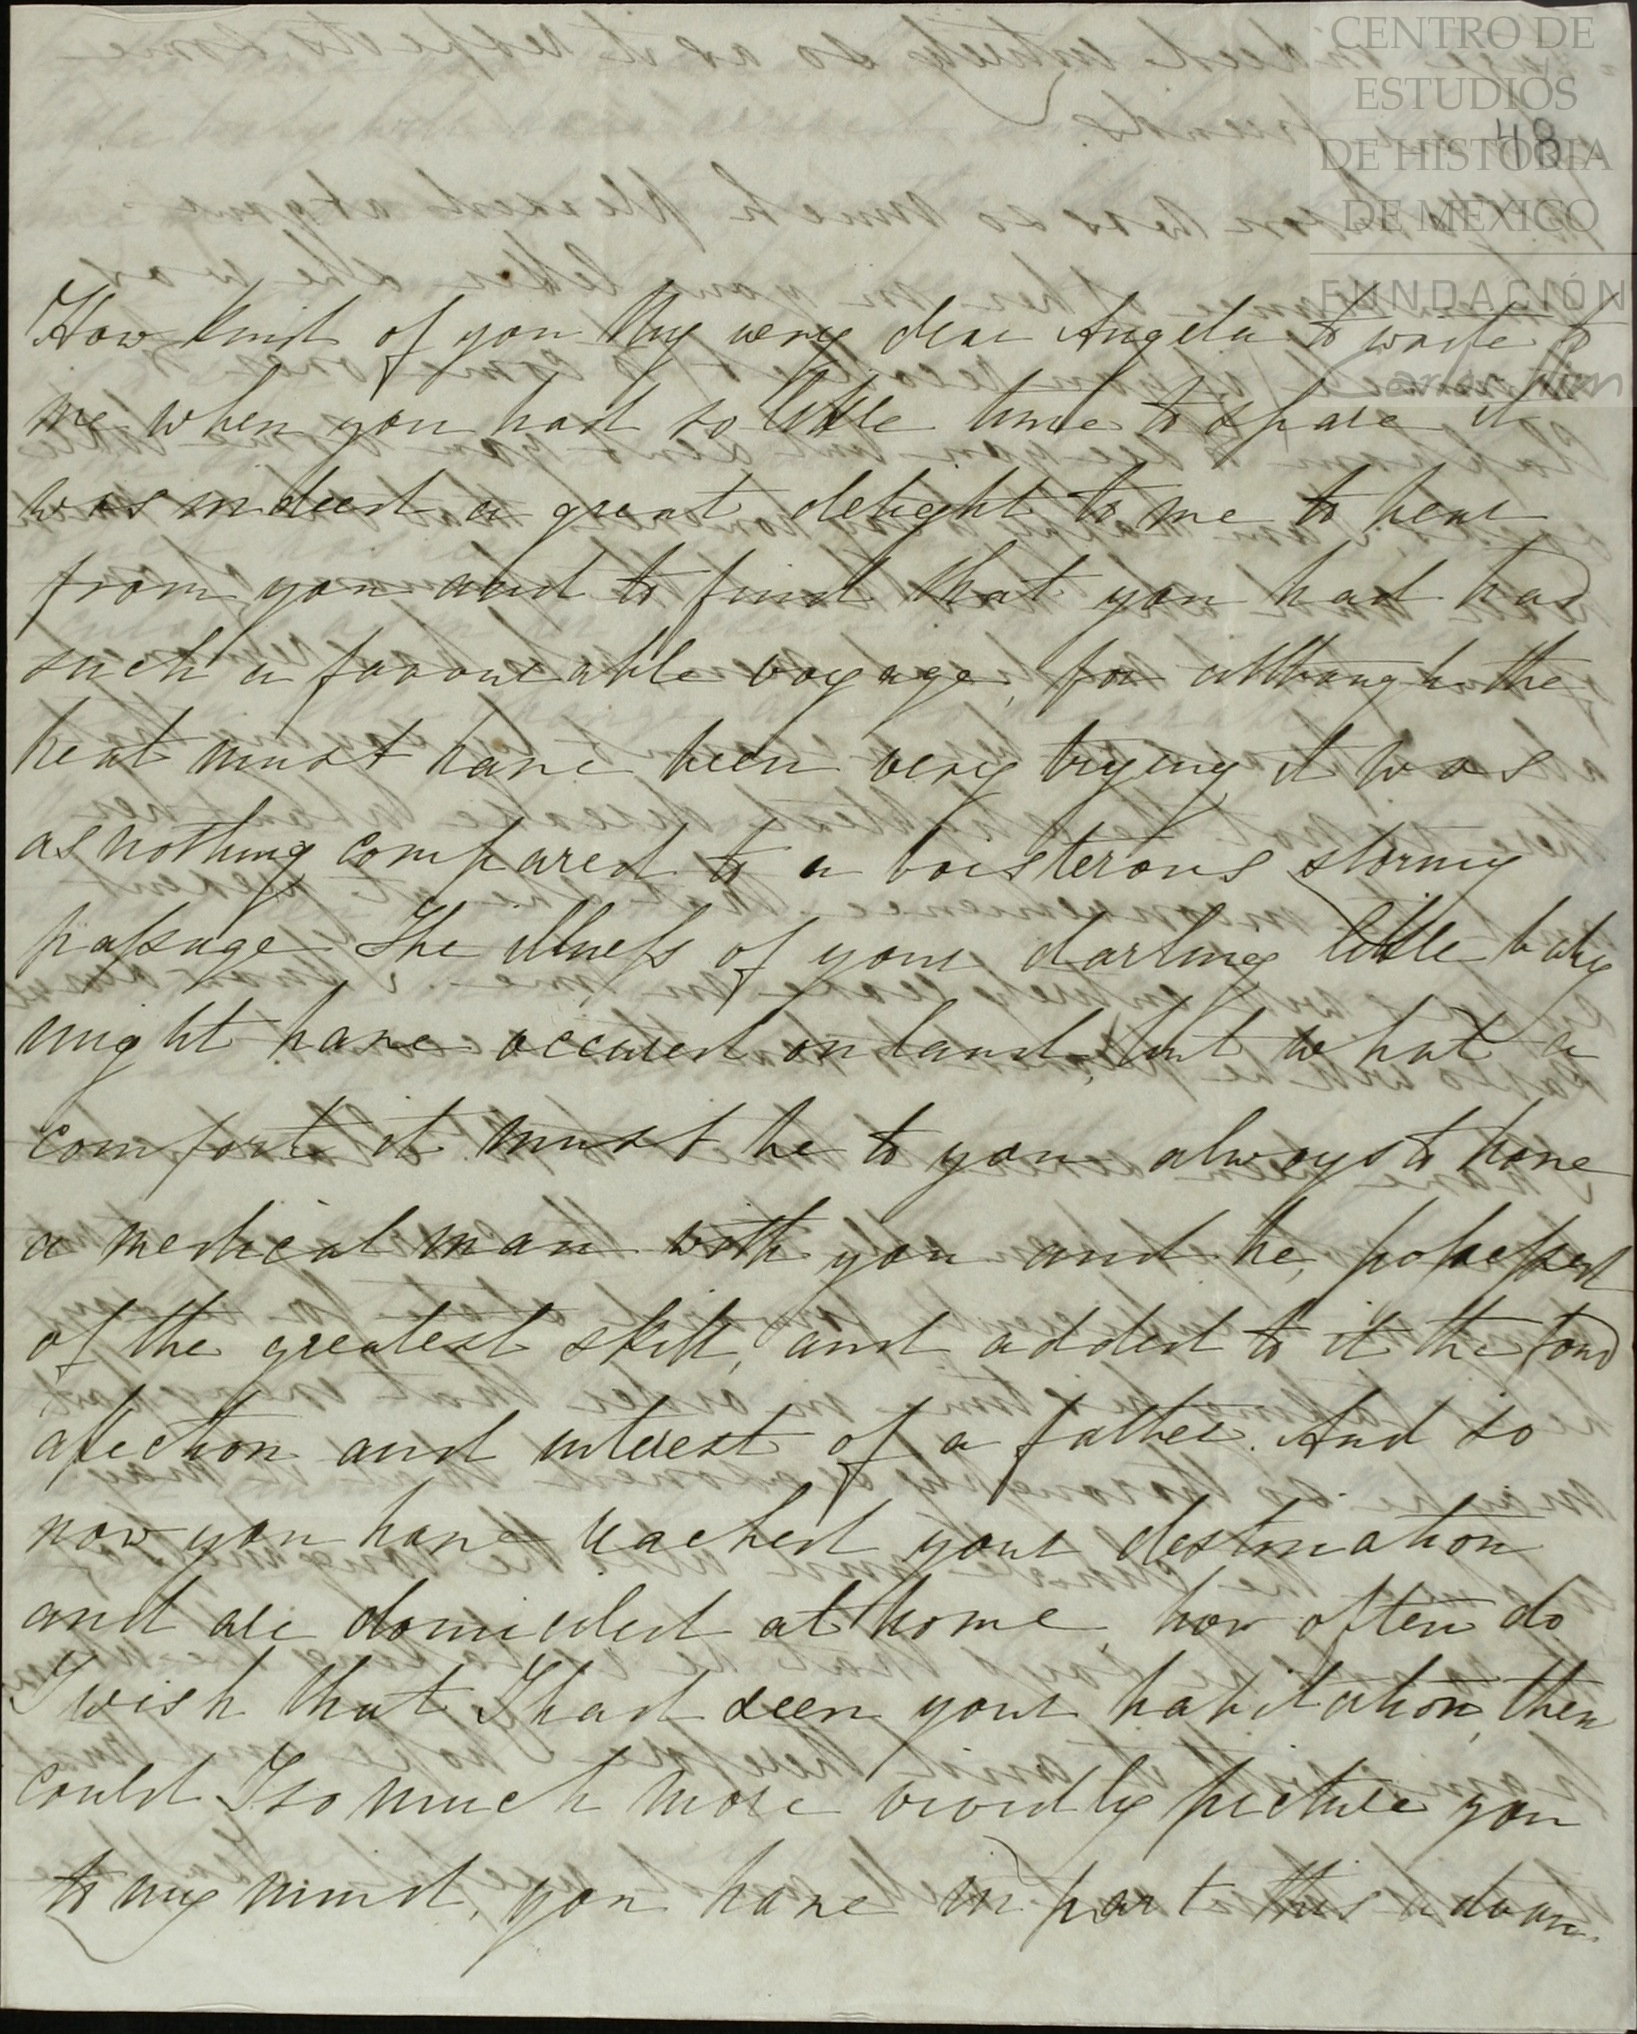 CENTRO DE
ESTUDIOS
DE HISTORIA
DE MEXICO
FUNDACIÓN
Carlos Slim
48
How kind of you My very dear Angela to write to
me when you had so little time to spare it
was indeed a great delight to me to hear
from you and to find that you had had
such a favourable voyage, for although the
heat must have been very trying, it was
as nothing compared to a boisterous stormy
passage. The illness of your darling little baby
might have occured on land, but what a
comfort it must be to you always to have
a medical man with you and he, possessed
of the greatest skill, and added to it the fond
afection and interest of a father. And so
now you have reached your destination
and are domiciled at home, how often do
I wish that I had seen your habitation, then
could I so much more vividly picture you
to my mind, you have in part this advan-